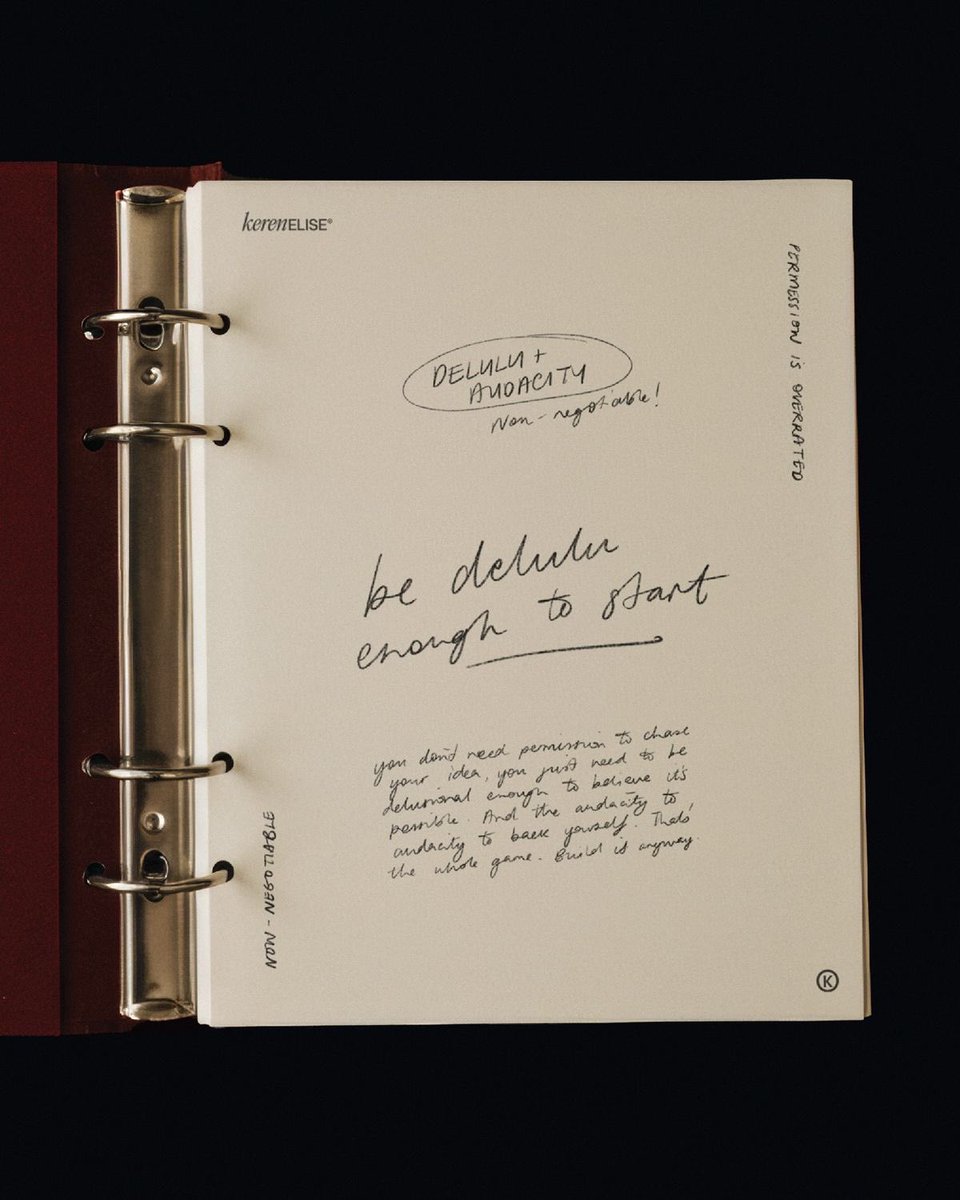 kerenELISE®
PERMISSION IS OVERRATED
DELULU +
AUDACITY
Non-negotiable!
be delulu
enough to start
you don't need permission to chase
your idea, you just need to be
delusional enough to believe it's
possible. And the audacity to,
audacity to back yourself. Thats'
the whole game. Build is anyway.
NON-NEGOTIABLE
K